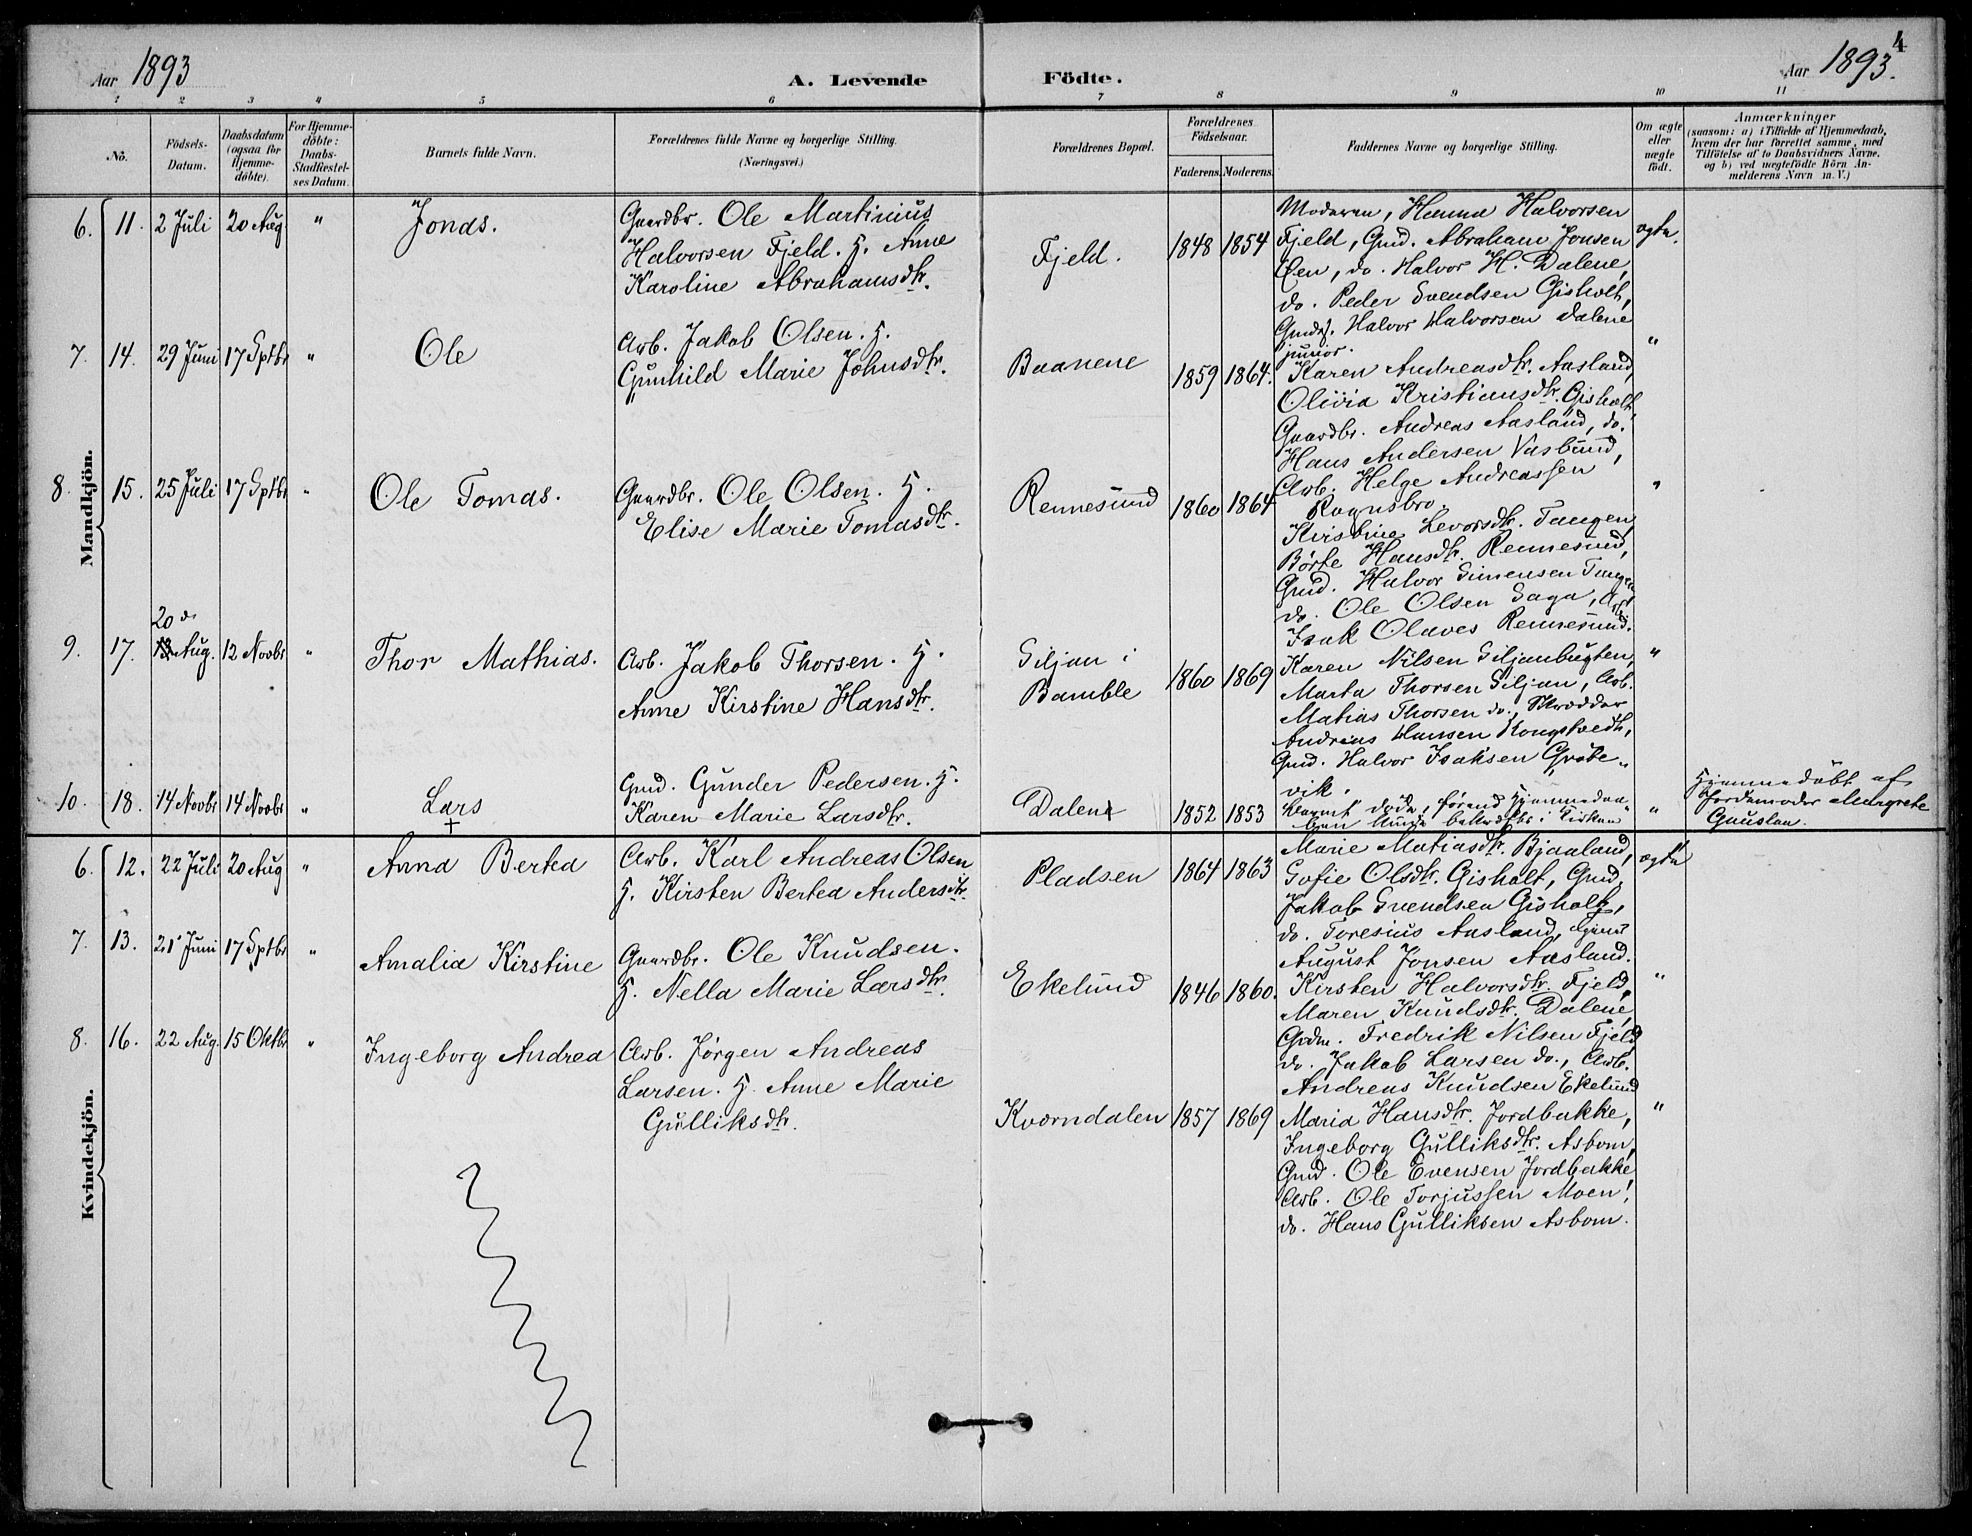 Aar 1893
A. Levende
Födte.
Aar 1893.
4
1 2 3 4 5 6 7 8 9 10 11
No.
Födsels-
Datum.
Daabsdatum
(ogsaa for
Hjemme-
döbte).
For Hjemme-
döbte:
Daabs-
Stadfæstel-
ses Datum.
Barnets fulde Navn.
Forældrenes fulde Navne og borgerlige Stilling.
(Næringsvei.)
Forældrenes Bopæl.
Forældrenes
Födselsaar.
Faderens. Moderens.
Faddernes Navne og borgerlige Stilling.
Om ægte
eller
uægte
födt.
Anmærkninger
(saasom: a) i Tilfælde af Hjemmedaab,
hvem der har forrettet samme, med
Tilföielse af to Daabsvidners Navne,
og b) ved uægtefödte Börn An-
melderens Navn m. V.)
Mandkjön.
6. 11. 2 Juli 20 Aug. " Jonas.
Gaardbr. Ole Martinius
Halvorsen Fjeld. H. Anne
Karoline Abrahamsdtr.
Fjeld. 1848 1854
Moderen, Hanna Halvorsen
Fjeld, Gmd. Abraham Jonsen
Øen, do. Halvor H. Dalene,
do. Peder Svendsen Gisholt,
Halvor Halvorsen Dalene
junior.
ægte.
7. 14. 29 Juni 17 Sptbr " Ole
Arb. Jakob Olsen. H.
Gunhild Marie Johnsdtr.
Baanene 1859 1864.
Karen Andreasdtr. Aasland,
Olivia Kristiansdtr. Gisholt,
Gaardbr. Andreas Aasland, do.
Hans Andersen Vasbund,
Arb. Helge Andreassen
Rognsbro.
"
8. 15. 25 Juli 17 Sptbr " Ole Tomas.
Gaardbr. Ole Olsen. H.
Elise Marie Tomasdtr.
Rennesund 1860 1864
Kirstine Levorsdtr. Tangen,
Børte Hansdtr. Rennesund,
Gmd. Halvor Simensen Tangen
do. Ole Olsen Saga, Arb.
Isak Olaves Rennesund.
"
20 de
9. 17. Aug. 12 Novbr " Thor Mathias.
Arb. Jakob Thorsen. H.
Anne Kirstine Hansdtr.
Siljan i
Bamble
1860 1869
Karen Nilsen Siljanbugten,
Marta Thorsen Siljan, Arb.
Matias Thorsen do., Skrædder
Andreas Hansen Kongstvedt,
Gmd. Halvor Isaksen Grobe-
vik.
"
10. 18. 14 Novbr 14 Novbr " Lars
+
Gmd. Gunder Pedersen. H.
Karen Marie Larsdtr.
Dalene 1852 1853
Barnet døde, førend Hjemmedaa-
ben kunde bekræftes i Kirken
"
Hjemmedöbt af
Jordemoder Margrete
Gauslaa.
Kvindekjön.
6. 12. 22 Juli 20 Aug " Anna Bertea
Arb. Karl Andreas Olsen
H. Kirsten Bertea Andersdtr.
Pladsen 1864 1863
Marie Matiasdtr. Bjaaland,
Sofie Olsdtr. Gisholt, Gmd.
Jakob Svendsen Gisholt,
do. Toresius Aasland,
August Jonsen Aasland.
ægte
7. 13. 21 Juni 17 Sptbr " Amalia Kirstine
Gaardbr. Ole Knudsen.
H. Nella Marie Larsdtr.
Ekelund 1846 1860.
Kirsten Halvorsdtr. Fjeld,
Maren Knudsdtr. Dalene,
Fredrik Nilsen Fjeld
do. Jakob Larsen do., Arb.
Andreas Knudsen Ekelund
"
8. 16. 22 Aug. 15 Oktbr " Ingeborg Andrea
Arb. Jørgen Andreas
Larsen. H. Anne Marie
Gulliksdtr.
Kværndalen 1857 1869
Maria Hansdtr. Jordbakke,
Ingeborg Gulliksdtr. Asbom,
Gmd. Ole Evensen Jordbakke
Arb. Ole Torjussen Moen,
do. Hans Gulliksen Asbom.
"